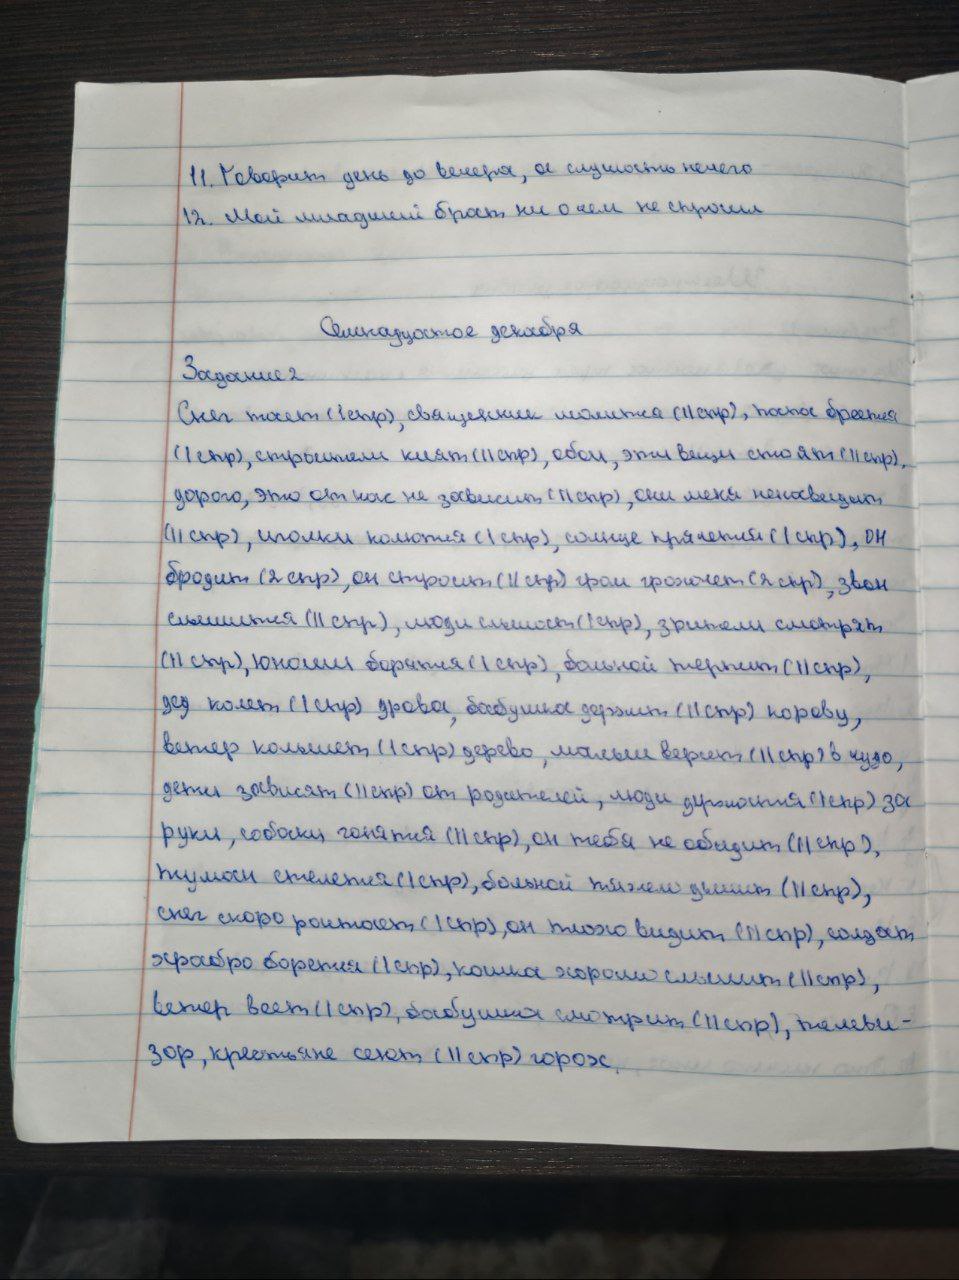 11. Говорит день до вечера, а слушать нечего
12. Мой младший брат ни о чем не спросил
Семнадцатое декабря
Задание 2
Снег тает (I спр), священник молится (II спр), папа бреется
(I спр), строители клеят (II спр), обои, эти вещи стоят (II спр),
дорого, это от нас не зависит (II спр), они меня ненавидят
(II спр), иголки колются (I спр), солнце прячется (I спр), он
бродит (2 спр), он строит (II спр) гром грохочет (2 спр), звон
слышится (II спр), люди слышат (I спр), зрители смотрят
(II спр), юноши борятся (I спр), больной терпит (II спр),
дед колет (I спр) дрова, бабушка держит (II спр) корову,
ветер колышет (I спр) дерево, малыш верит (II спр) в чудо,
дети зависят (II спр) от родителей, люди держатся (I спр) за
руки, собаки гонятся (II спр), он тебя не обидит (II спр),
туман стелется (I спр), больной тяжело дышит (II спр),
снег скоро растает (I спр), он плохо видит (II спр), солдат
храбро борется (I спр), кошка хорошо слышит (II спр),
ветер веет (I спр), бабушка смотрит (II спр), телеви-
зор, крестьяне сеют (II спр) горох.